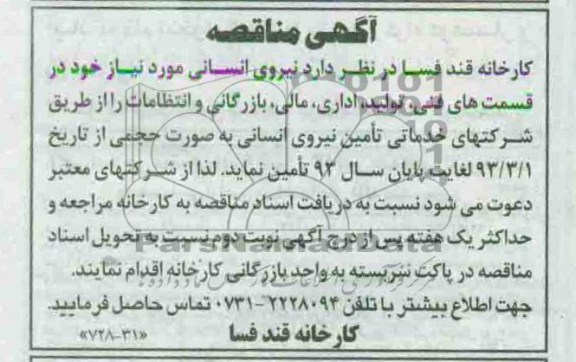 آگهی مناقصه
کارخانه قند فسا در نظر دارد نیروی انسانی مورد نیاز خود در
قسمت های فنی، تولید، اداری، مالی، بازرگانی و انتظامات را از طریق
شرکتهای خدماتی تأمین نیروی انسانی به صورت حجمی از تاریخ
۹۳/۳/۱ لغایت پایان سال ۹۳ تأمین نماید. لذا از شرکتهای معتبر
دعوت می شود نسبت به دریافت اسناد مناقصه به کارخانه مراجعه و
حداکثر یک هفته پس از درج آگهی نوبت دوم نسبت به تحویل اسناد
مناقصه در پاکت سربسته به واحد بازرگانی کارخانه اقدام نمایند.
جهت اطلاع بیشتر با تلفن ۲۲۲۸۰۹۴-۰۷۳۱ تماس حاصل فرمایید.
کارخانه قند فسا
«۷۲۸-۳۱»